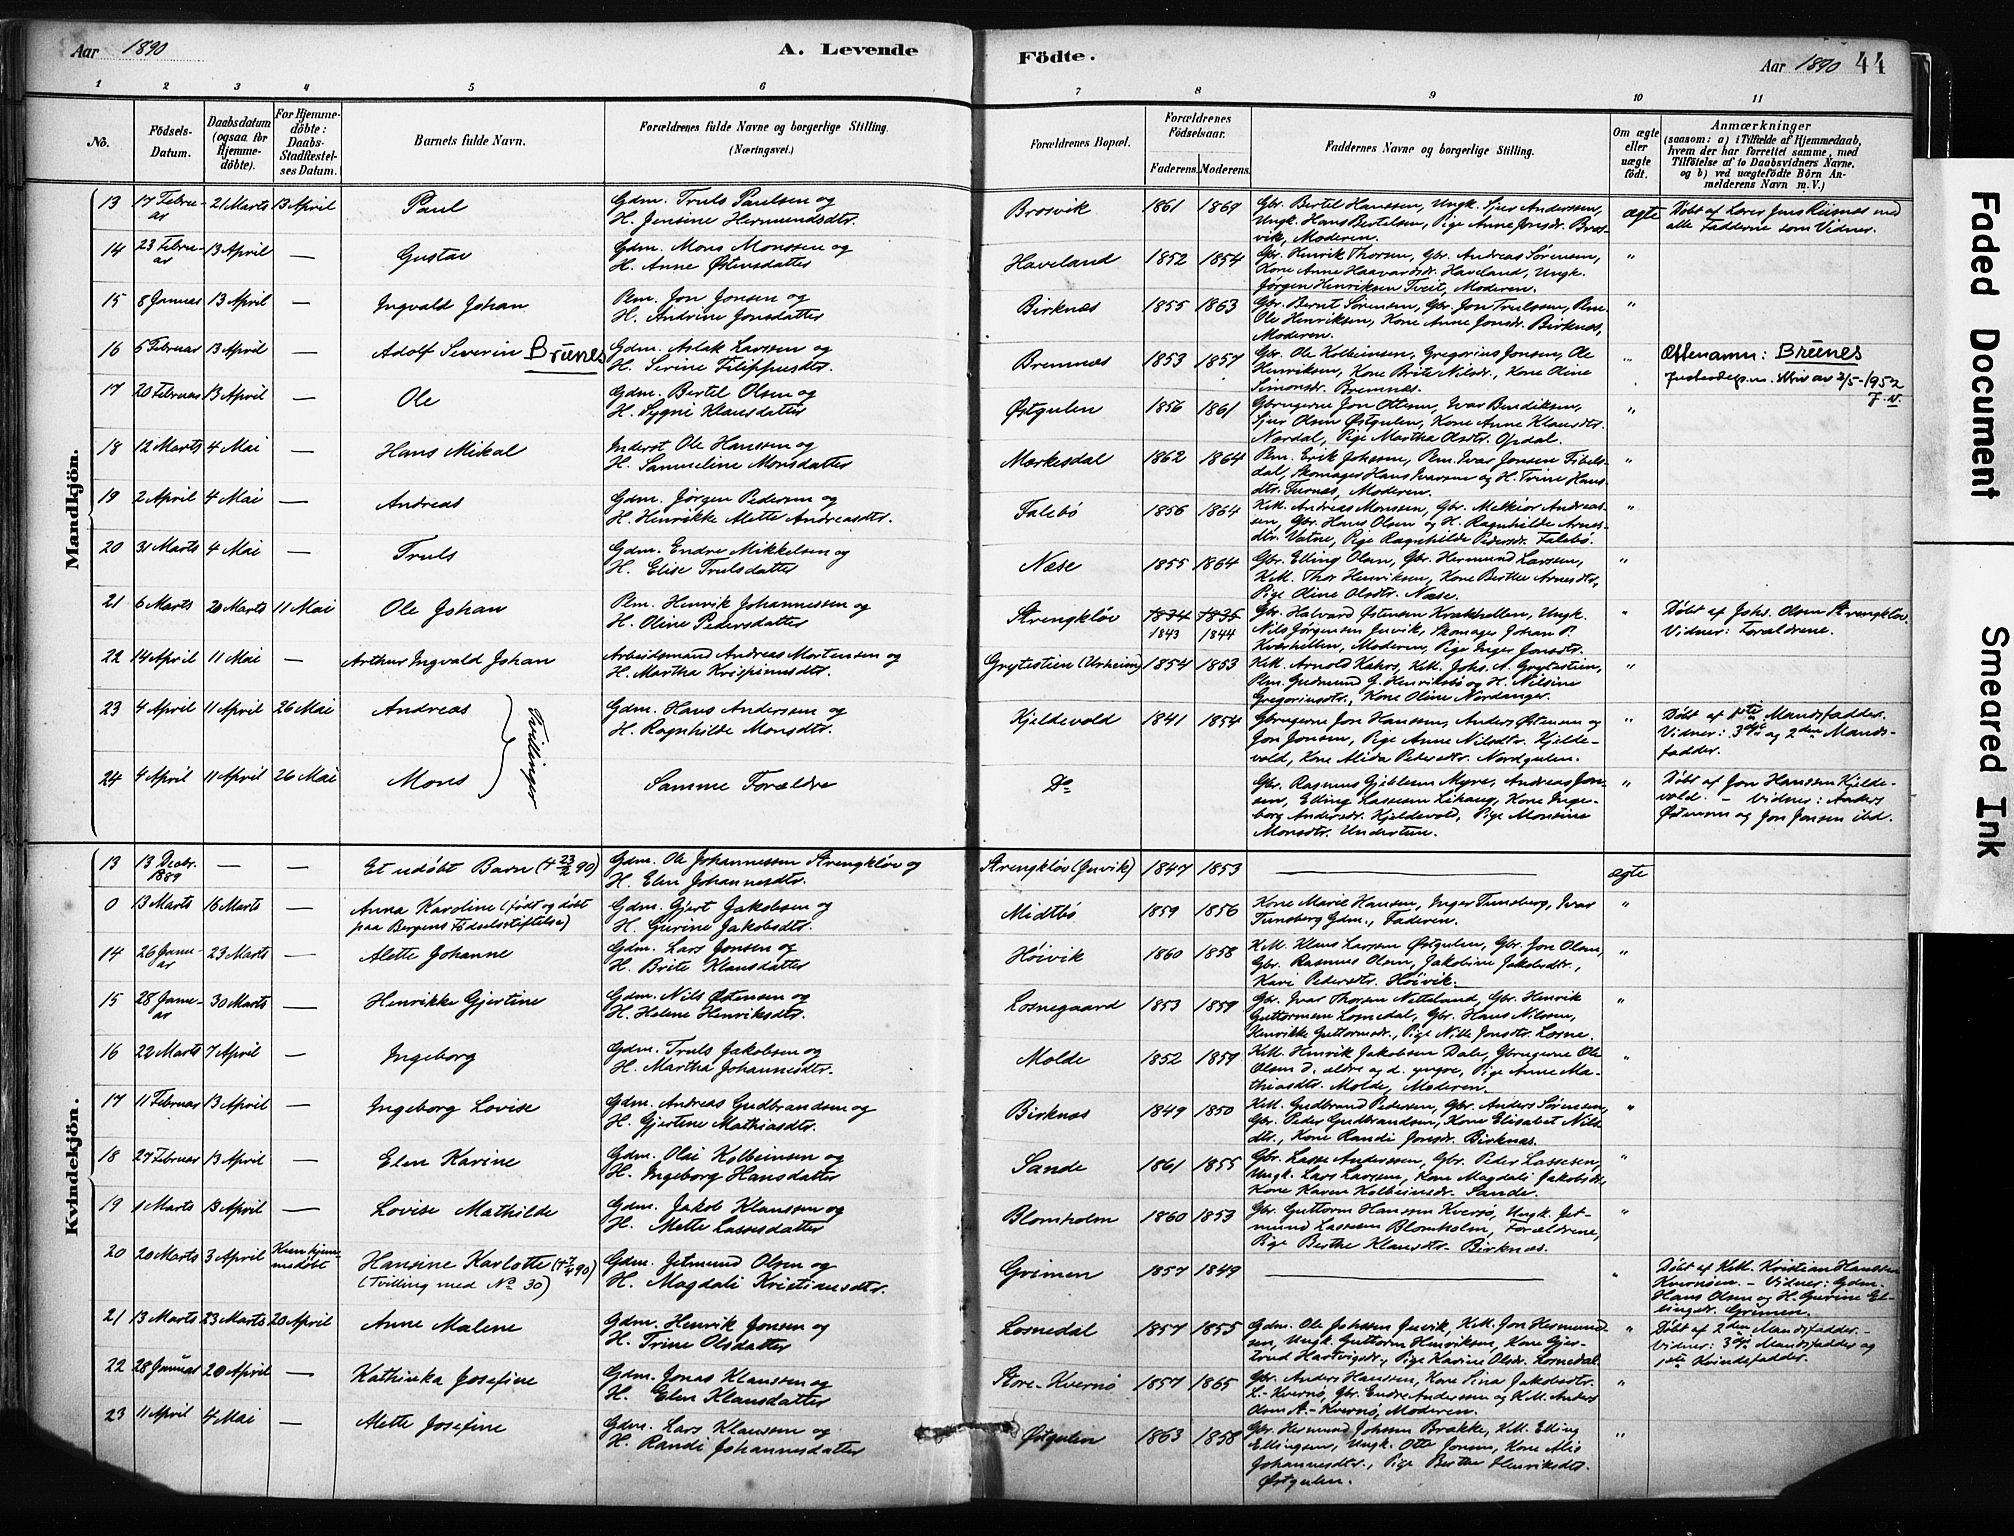 Aar 1890
A. Levende
Födte.
Aar 1890 44
1 2 3 4 5 6 7 8 9 10 11
No.
Födsels-
Datum.
Daabsdatum
(ogsaa for
Hjemme-
döbte).
For Hjemme-
döbte:
Daabs-
Stadfæstel-
ses Datum.
Barnets fulde Navn.
Forældrenes fulde Navne og borgerlige Stilling.
(Næringsvei.)
Forældrenes Bopæl.
Forældrenes
Födselsaar.
Faderens. Moderens.
Faddernes Navne og borgerlige Stilling.
Om ægte
eller
uægte
födt.
Anmærkninger
(saasom: a) i Tilfælde af Hjemmedaab,
hvem der har forrettet samme, med
Tilföielse af to Daabsvidners Navne,
og b) ved uægtefödte Börn An-
melderens Navn m. V.)
Mandkjön.
13 17 Febru-
ar 21 Marts 13 April Paul
Gdm. Truls Paulsen og
H. Jensine Hermundsdtr.
Brosvik 1861 1869
Gbr. Bertel Hanssen, Ungk. Sjur Anderssen,
Ungk. Hans Bertelsen, Pige Anne Jonsdr. Bros-
vik, Moderen.
ægte
Døbt af Lærer Jens Risnes med
alle Fadderne som Vidner.
14 23 Febru-
ar 13 April — Gustav
Gdm. Mons Monssen og
H. Anne Østensdatter
Haveland 1852 1854
Gbr. Henrik Thorsen, Gbr. Andreas Sørensen,
Kone Anne Haavardsdr. Haveland, Ungk.
Jørgen Henriksen Tveit, Moderen.
"
15 8 Januar 13 April — Ingvald Johan
Plm. Jon Jonsen og
H. Andrine Jonsdatter
Birknæs 1855 1863
Gbr. Bernt Sørensen, Gbr. Jon Trulssen, Plm.
Ole Henriksen, Kone Anne Jonsdr. Birknæs,
Moderen.
"
16 5 Februar 13 April — Adolf Severin Brünes
Gdm. Aslak Larssen og
H. Serine Filippusdtr.
Bremnæs 1853 1857
Gbr. Ole Kolbeinsen, Gregorius Jonsen, Ole
Henriksen, Kone Brite Nilsdr., Kone Oline
Simonsdr. Bremnæs.
"
Ættenamn: Brünes
Justisdep.m. skriv av 2/5-1952
17 20 Februar 13 April — Ole
Gdm. Bertel Olsen og
H. Sygni Klausdatter
Østgulen 1856 1861
Gbrugerne Jon Ottesen, Ivar Bendiksen,
Sjur Olsen Østgulen, Kone Anne Klausdtr.
Nordal, Pige Martha Olsdtr. Opdal.
"
18 12 Marts 4 Mai — Hans Mikal
Inderst Ole Hanssen og
H. Samueline Monsdatter
Markesdal 1862 1864
Plm. Erik Johssen, Plm. Ivar Jonsen Fibels-
dal, Skomager Hans Ivarsen og H. Trine Hans-
dtr. Furnæs, Moderen.
"
19 2 April 4 Mai — Andreas
Gdm. Jørgen Pedersen og
H. Henrikke Mette Andreasdtr.
Falebø 1856 1864
KM. Andreas Monssen, Gbr. Melkior Andreas-
sen, Gbr. Hans Olsen og H. Ragnhilde Arnes-
dtr. Vatne, Pige Ragnhilde Pedersdr. Falebø.
"
20 31 Marts 4 Mai — Truls
Gdm. Endre Mikkelsen og
H. Elise Trulsdatter
Næse 1855 1864
Gbr. Elling Olsen, Gbr. Hermund Larssen,
KM. Thor Henriksen, Kone Berthe Arnesdtr.,
Pige Oline Olsdtr. Næse.
"
21 6 Marts 20 Marts 11 Mai Ole Johan
Plm. Henrik Johannessen og
H. Oline Pedersdatter
Strengkløv 1834 1836
1843 1844
Gbr. Halvard Østensen Krakhellen, Ungk.
Nils Jørgensen Juvik, Skomager Johan P.
Krakhellen, Moderen, Pige Inger Jonsdtr.
"
Døbt af Johs. Olsen Strengkløv.
Vidner: Forældrene.
22 14 April 11 Mai — Arthur Ingvald Johan
Arbeidsmand Andreas Mortensen og
H. Martha Krispinusdtr.
Grytestien (Urheim) 1854 1853
KM. Arnold Kahrs, KM. Johs. A. Grytestien,
Plm. Gudmund G. Henriksbø og H. Nilsine
Gregoriusdtr., Kone Oline Nordanger.
"
23 4 April 11 April 26 Mai Andreas
Tvillinger
Gdm. Hans Andersen og
H. Ragnhilde Monsdtr.
Kjeldevold 1841 1854
Gbrugerne Jon Hanssen, Anders Østensen og
Jon Jonsen, Pige Anne Nilsdtr. Kjelde-
vold, Kone Alida Pedersdtr. Nordgulen.
"
Døbt af 1ste Mandsfadder.
Vidner: 3die og 2den Mands-
fadder.
24 4 April 11 April 26 Mai Mons
Samme Forældre
Do
Gbr. Rasmus Gjeblesen Myre, Andreas Jon-
sen, Elling Lassesen Lihaug, Kone Inge-
borg Andersdr. Kjeldevold, Pige Monsine
Monsdtr. Undertun.
"
Døbt af Jon Hanssen Kjelde-
vold. — Vidner: Anders
Østensen og Jon Jonsen ibd.
Kvindekjön.
13 13 Decbr.
1889 — — Et udøbt Barn († 23/2 90)
Gdm. Ole Johannessen Strengkløv og
H. Elen Johannesdtr.
Strengkløv (Juvik) 1847 1853 — ægte
0 13 Marts 16 Marts — Anna Karoline (født og døbt
paa Bergens Fødselsstiftelse)
Gdm. Gjert Jakobsen og
H. Gurine Jakobsdtr.
Midtbø 1859 1856
Kone Marie Hansen, Inger Tunsberg, Ivar
Tunsberg Gdm., Faderen.
"
14 26 Janu-
ar 23 Marts — Alette Johanne
Gdm. Lars Jonsen og
H. Brite Klausdatter
Høivik 1860 1858
KM. Klaus Larssen Østgulen, Gbr. Jon Olsen,
Gbr. Rasmus Olsen, Jakobine Jakobsdtr.,
Kari Pedersdtr. Høivik.
"
15 28 Janu-
ar 30 Marts — Henrikke Gjertine
Gdm. Nils Østensen og
H. Helene Henriksdtr.
Losnegaard 1853 1859
Gbr. Ivar Thorsen Netteland, Gbr. Henrik
Guttormsen Losnedal, Gbr. Hans Nilssen,
Henrikke Guttormsdr., Pige Nille Jonsdtr. Losne.
"
16 22 Marts 7 April — Ingeborg
Gdm. Truls Jakobsen og
H. Martha Johannesdtr.
Molde 1852 1859
KM. Henrik Jakobsen Dale, Gbrugerne Ole
Olsen d. ældre og d. yngre, Pige Anne Ma-
thiasdtr. Molde, Moderen.
"
17 11 Februar 13 April — Ingeborg Lovise
Gdm. Andreas Gudbrandsen og
H. Gjertine Mathiasdtr.
Birknæs 1849 1850
KM. Gudbrand Pedersen, Gbr. Anders Sørensen,
Gbr. Peder Gudbrandsen, Kone Elisabet Nils-
dtr., Kone Randi Jonsdr. Birknæs.
"
18 27 Februar 13 April — Elen Karine
Gdm. Olai Kolbeinsen og
H. Ingeborg Hansdatter
Sande 1861 1855
Gbr. Lasse Anderssen, Gbr. Peder Lassesen,
Ungk. Lars Larssen, Kone Magdali Jakobsdr.,
Kone Karen Kolbeinsdr. Sande.
"
19 1 Marts 13 April — Lovise Mathilde
Gdm. Jakob Klaussen og
H. Mette Lassesdatter
Blomholm 1860 1853
Gbr. Guttorm Hanssen Kversø, Ungk. Jet-
mund Lassesen Blomholm, Forældrene,
Pige Berthe Klausdtr. Birknæs.
"
20 20 Marts 3 April Kun hjem-
medøbt Hansine Karlotte († 7/4 90)
(Tvilling med No 30)
Gdm. Jetmund Olsen og
H. Magdali Kristiansdtr.
Grimen 1857 1849 — "
Døbt af KM. Kristian Hanssen
Kversøen. — Vidner: Gdm.
Hans Olsen og H. Gurine El-
lingsdr. Grimen.
21 13 Marts 23 Marts 20 April Anne Malene
Gdm. Henrik Jonsen og
H. Trine Olsdatter
Losnedal 1857 1855
Gdm. Ole Johssen Juvik, KM. Jon Hermund-
sen, Ungk. Guttorm Henriksen, Kone Gjer-
trud Hartvigsdr., Pige Karine Olsdr. Losnedal.
"
Døbt af 2den Mandsfadder. —
Vidner: 3die Mandsfadder og
1ste Kvindefadder.
22 28 Januar 20 April — Kathinka Josefine
Gdm. Jonas Klaussen og
H. Elen Klausdatter
Store-Kvernø 1857 1865
Gbr. Anders Hanssen, Kone Sina Jakobsdtr.
L.-Kvernø, Gbr. Endre Anderssen og KM. Anders
Olsen A.-Kvernø, Moderen.
"
23 11 April 4 Mai — Alette Josefine
Gdm. Lars Klaussen og
H. Randi Johannesdatter
Østgulen 1863 1858
Gbr. Hermund Johssen Brække, KM. Elling
Ellingsen, Ungk. Otte Jonsen, Kone Alis
Johannesdtr., Pige Berthe Henriksdtr.
Østgulen.
"
Faded Document
Smeared Ink